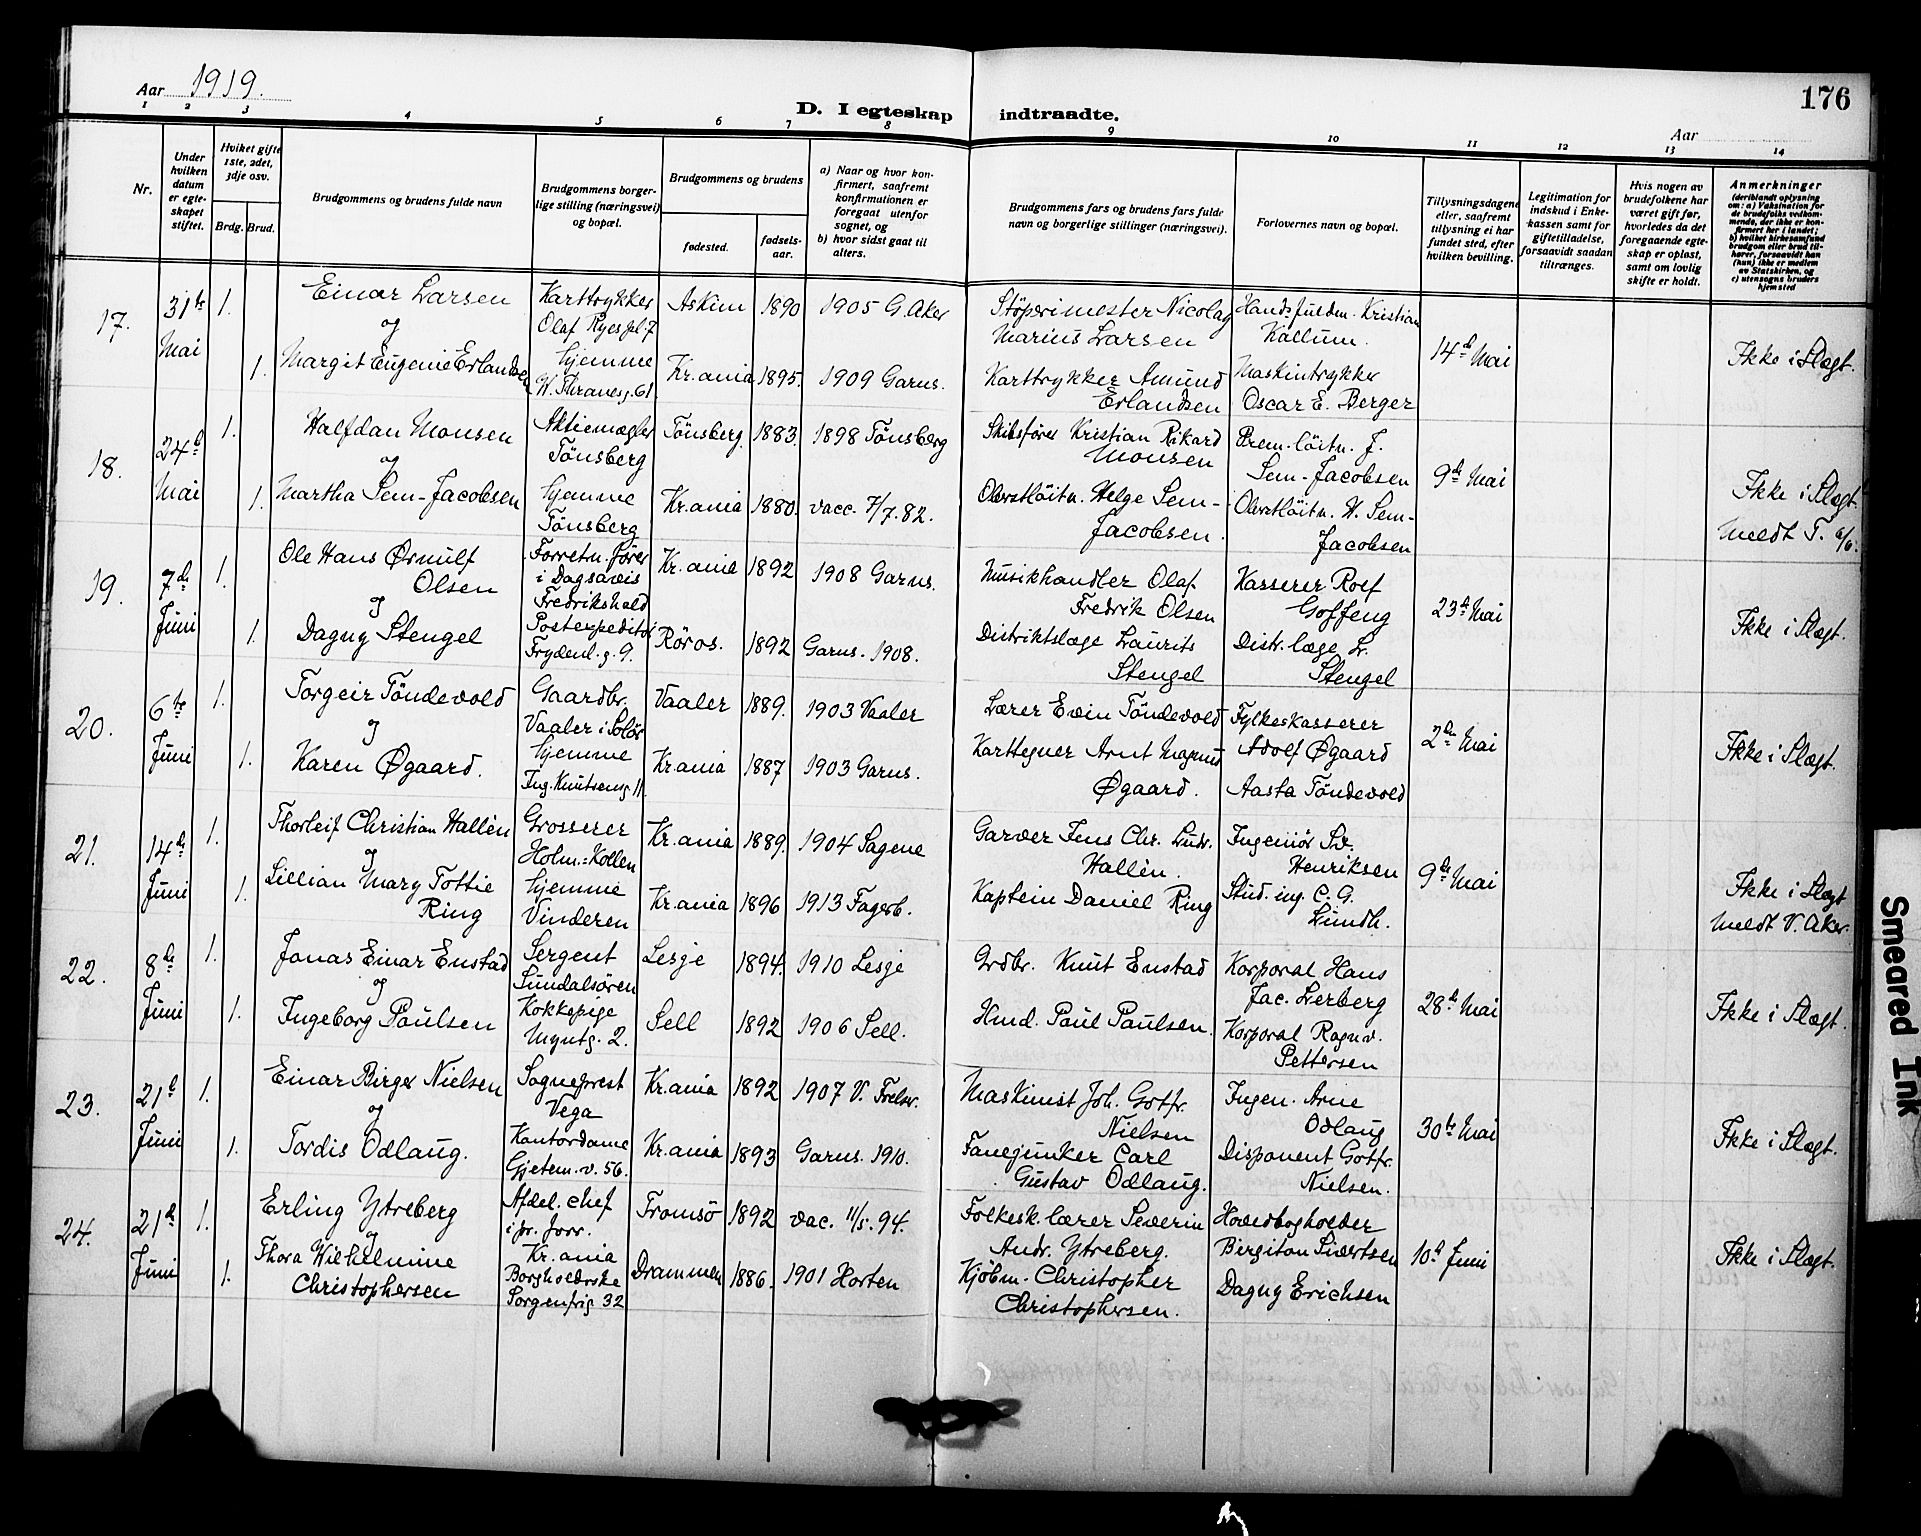 Aar 1919.
D. I egteskap indtraadte.
176
Aar
1 2 3 4 5 6 7 8 9 10 11 12 13 14
Nr.
Under hvilken datum er egteskapet stiftet.
Hviket gifte 1ste, 2det, 3dje osv.
Brdg. Brud.
Brudgommens og brudens fulde navn
Brudgommens borgerlige stilling (næringsvei) og bopæl.
Brudgommens og brudens
fødested.
fødselsaar.
a) Naar og hvor konfirmert, saafremt konfirmationen er foregaat utenfor sognet, og
b) hvor sidst gaat til alters.
Brudgommens fars og brudens fars fulde navn og borgerlige stillinger (næringsvei).
Forlovernes navn og bopæl.
Tillysningsdagene eller, saafremt tillysning ei har fundet sted, efter hvilken bevilling.
Legitimation for indskud i Enkekassen samt for giftetilladelse, forsaavidt saadan tiltrænges.
Hvis nogen av brudefolkene har været gift før, hvorledes da det foregaaende egteskap er opløst, samt om lovlig skifte er holdt.
Anmerkninger (deriblandt oplysning om: a) Vaksination for de brudefolks vedkommende, der ikke er konfirmert her i landet; b) hvilket kirkesamfund brudgom eller brud tilhører, forsaavidt han (hun) ikke er medlem av Statskirken, og c) utensogns bruders hjemsted
17. 31te Mai
1. Einar Larsen Karttrykker Olaf Ryes pl. 7 Askim 1890 1905 G. Aker Støperimester Nicolay Marius Larsen Hands.fuldm. Kristian Kallum. 14de Mai
og
1. Margit Eugenie Erlandsen hjemme W. Thranesg. 61 Kr.ania 1895. 1909 Garns. Karttrykker Amund Erlandsen Maskintrykker Oscar E. Berger Ikke i Slægt.
18. 24de Mai
1. Halfdan Monsen Aktiemægler Tønsberg Tønsberg. 1883. 1898 Tønsberg Skibsfører Kristian Rikard Monsen Prem.løitn. J. Sem-Jacobsen 9de Mai
og
1. Martha Sem-Jacobsen hjemme Tønsberg Kr.ania 1880. vacc. 7/7.82. Oberstløitn. Helge Sem-Jacobsen. Oberstløitn. H. Sem-Jacobsen Ikke i Slægt.
Meldt T. 6/6.
19. 7de Juni
1. Ole Hans Ørnulf Olsen Forretn.fører i Dagsavis Fredrikshald Kr.ania 1892 1908 Garns. Musikhandler Olaf Fredrik Olsen Kasserer Rolf Goffeng 23de Mai
og
1. Dagny Stengel Postexpeditør Frydenl.g. 9. Röros. 1892 Garns. 1908. Distriktslæge Laurits Stengel Distr.læge L. Stengel Ikke i Slægt.
20. 6te Juni
1. Torgeir Töndevold Gaardbr. Vaaler i Solör Vaaler 1889. 1903 Vaaler Lærer Evin Töndevold Fylkeskasserer Adolf Øgaard 2den Mai
og
1. Karen Øgaard. hjemme Ing. Knutseng 11. Kr.ania 1887 1903 Garns. Karttegner Arnt Magnus Øgaard. Aasta Töndevold Ikke i Slægt.
21. 14de Juni
1. Thorleif Christian Hallèn Grosserer Holm.-Kollen Kr.ania 1889. 1904 Sagene Garver Jens Chr. Ludv. Hallèn. Ingeniör Sv. Henriksen 9de Mai
og
1. Lillian Mary Tottie Ring hjemme Vinderen Kr.ania 1896 1913 Fagerb. Kaptein Daniel Ring Stud. ing. C. G. Lundh. Ikke i Slægt
Meldt V. Aker.
22. 8de Juni
1. Jonas Einar Enstad Sergent Sundalsören Lesje 1894. 1910 Lesje Grdbr. Knut Enstad Korporal Hans Jac. Lerberg 28de Mai
og
1. Ingeborg Paulsen Kokkepige Myntg. 2. Sell 1892 1906 Sell. Hmd. Paul Paulsen. Korporal Ragnv. Pettersen Ikke i Slægt.
23. 21de Juni
1. Einar Birger Nielsen Sogneprest Vega Kr.ania 1892 1907 V. Frelser. Maskinist Joh. Gotfr. Nielsen Ingen. Arne Odlaug 30te Mai
og
1. Tordis Odlaug. Kontordame Gjetem.v. 56. Kr.ania 1893 Garns. 1910. Fanejunker Carl Gustav Odlaug. Disponent Gotfr. Nielsen. Ikke i Slægt.
24. 21de Juni
1. Erling Ytreberg Afdel. chef i pr. forr. Kr.ania Tromsö 1892 vac. 11/5. 94. Folkesk.lærer Severin Andr. Ytreberg. Hovedbogholder Birgiton Sivertsen 10de Juni
og
1. Thora Wilhelmine Christophersen Borgholderske Sorgenfrig. 32 Drammen 1886. 1901 Horten Kjöbm. Christopher Christophersen. Dagny Erichsen Ikke i Slægt.
Smeared Ink